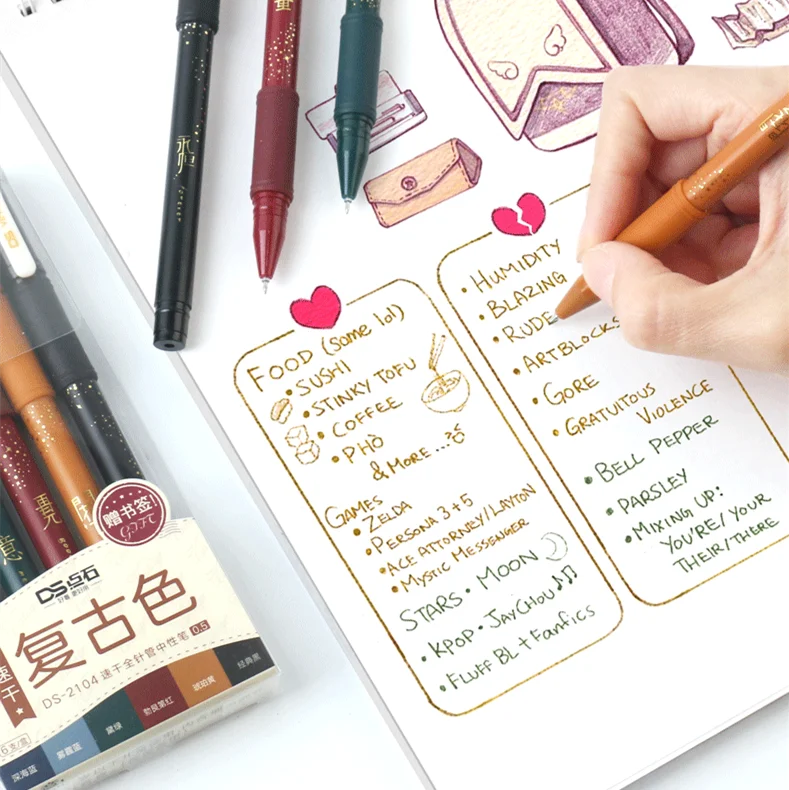 永恒
FOOD (some lol)
• SUSHI
• STINKY TOFU
• COFFEE
• PHỞ
& MORE...
GAMES
• ZELDA
• PERSONA 3+5
• ACE ATTORNEY/LAYTON
• MYSTIC MESSENGER
STARS • MOON
• KPOP • JAYCHOU
• FLUFF BL + FANFICS
• HUMIDITY
• BLAZING
• RUDE
• ARTBLOCKS
• GORE
• GRATUITOUS VIOLENCE
• BELL PEPPER
• PARSLEY
• MIXING UP:
YOU'RE/YOUR
THEIR/THERE
赠书签!
GIFT
DS点石
复古色
速干
DS-2104 速干全针管中性笔 0.5
6支/盒
深海蓝
雾霾蓝
黛绿
勃艮第红
琥珀黄
经典黑